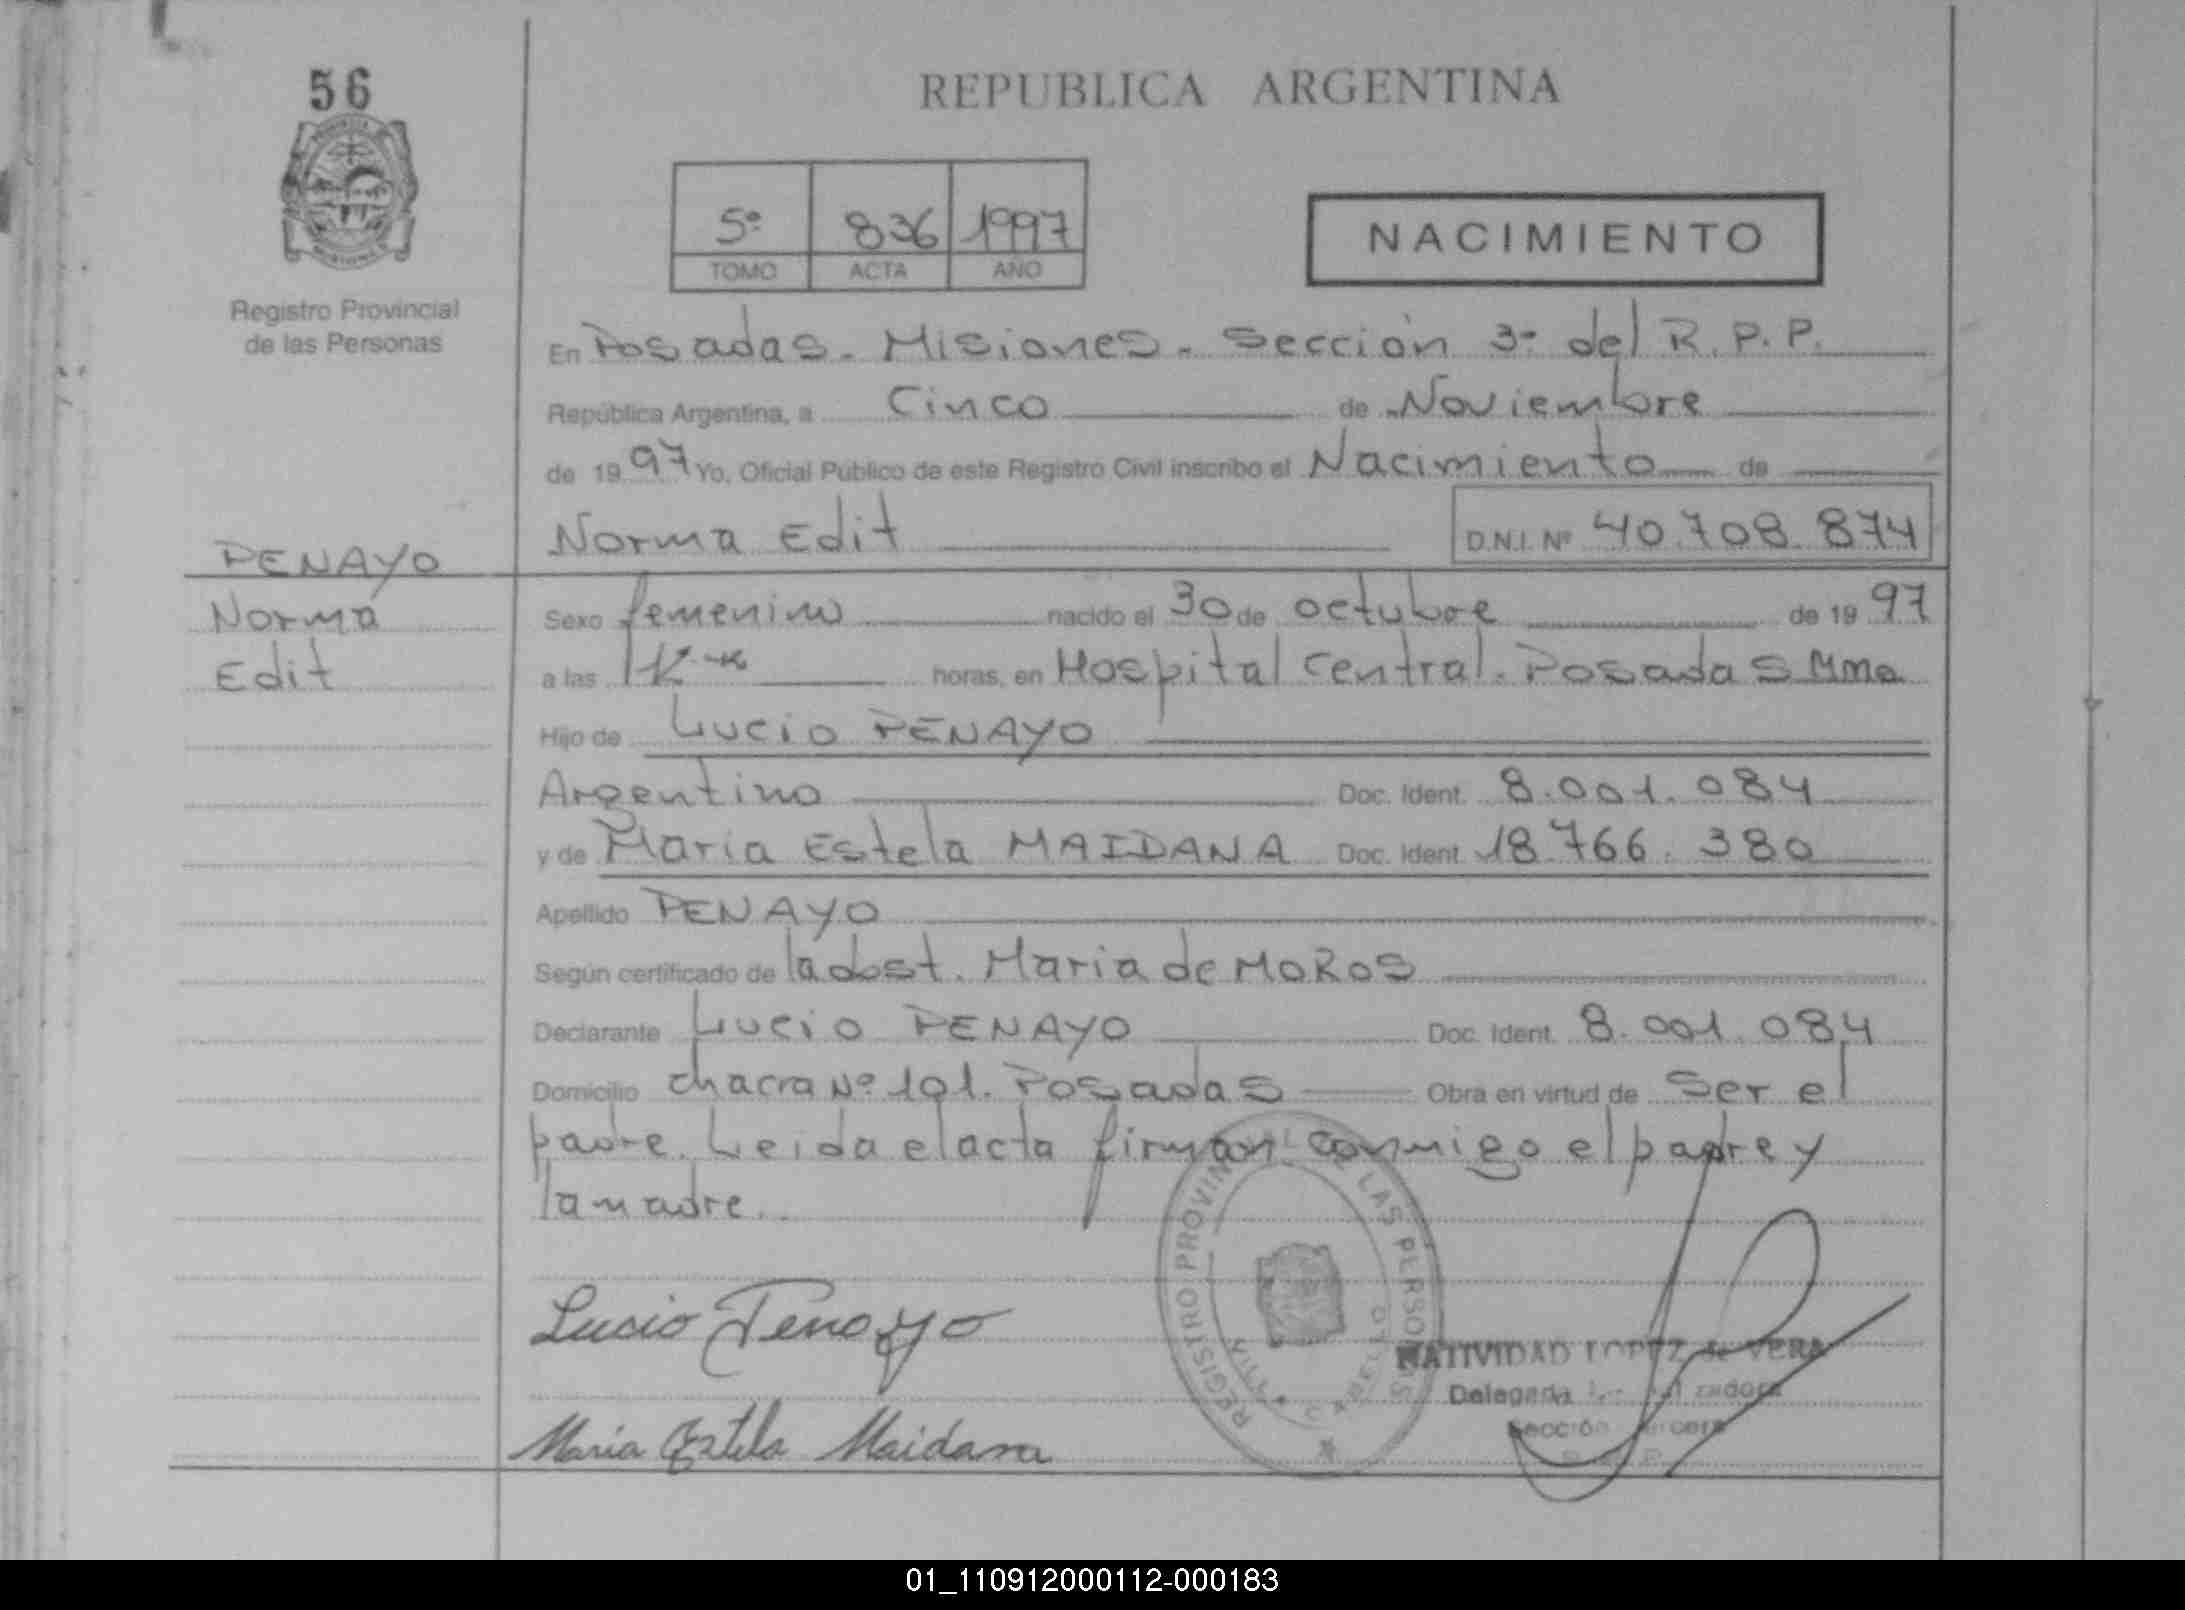 56
REPUBLICA ARGENTINA
5º 836 1997
TOMO ACTA AÑO
NACIMIENTO
Registro Provincial
de las Personas
En Posadas - Misiones - Sección 3ª del R.P.P.
República Argentina, a Cinco de Noviembre
de 1997 Yo, Oficial Público de este Registro Civil inscribo el Nacimiento de
Norma Edit D.N.I. Nº 40.708.874
PENAYO
Norma
Edit
Sexo femenino nacido el 30 de octubre de 1997
a las horas, en Hospital Central. Posadas Mnes
Hijo de Lucio PENAYO
Argentino Doc. Ident. 8.001.084
y de Maria Estela MAIDANA Doc. Ident 18.766.380
Apellido PENAYO
Según certificado de la obst. Maria de MOROS
Declarante Lucio PENAYO Doc. Ident. 8.001.084
Domicilio chacra Nº 101. Posadas Obra en virtud de ser el
padre. Leida el acta firman conmigo el padre y
la madre.
Lucio Penayo
Maria Estela Maidana
REGISTRO PROVINCIAL DE LAS PERSONAS
NATIVIDAD LOPEZ de VERA
Delegada
Sección Tercera
01_110912000112-000183